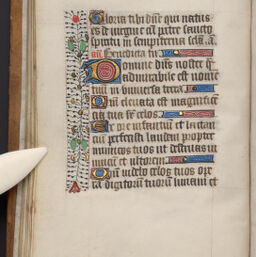 Gloria tibi dñe qui natus
es de uirgine cũ patre et sancto
spiritu in sempiterna secula. a.
añ. Benedicta tu.
Domine dñs noster q̃
admirabile est nomẽ
tuũ in uniuersa terra.
Qm̃ eleuata est magnificẽ
cia tua sup̃ celos.
Ex ore infantiũ et lactan
ciũ perfecisti laudem propter
inimicos tuos ut destruas in
imicũ et ultorem.
Qm̃ uidebo celos tuos ope
ra digitorũ tuorũ lunam et